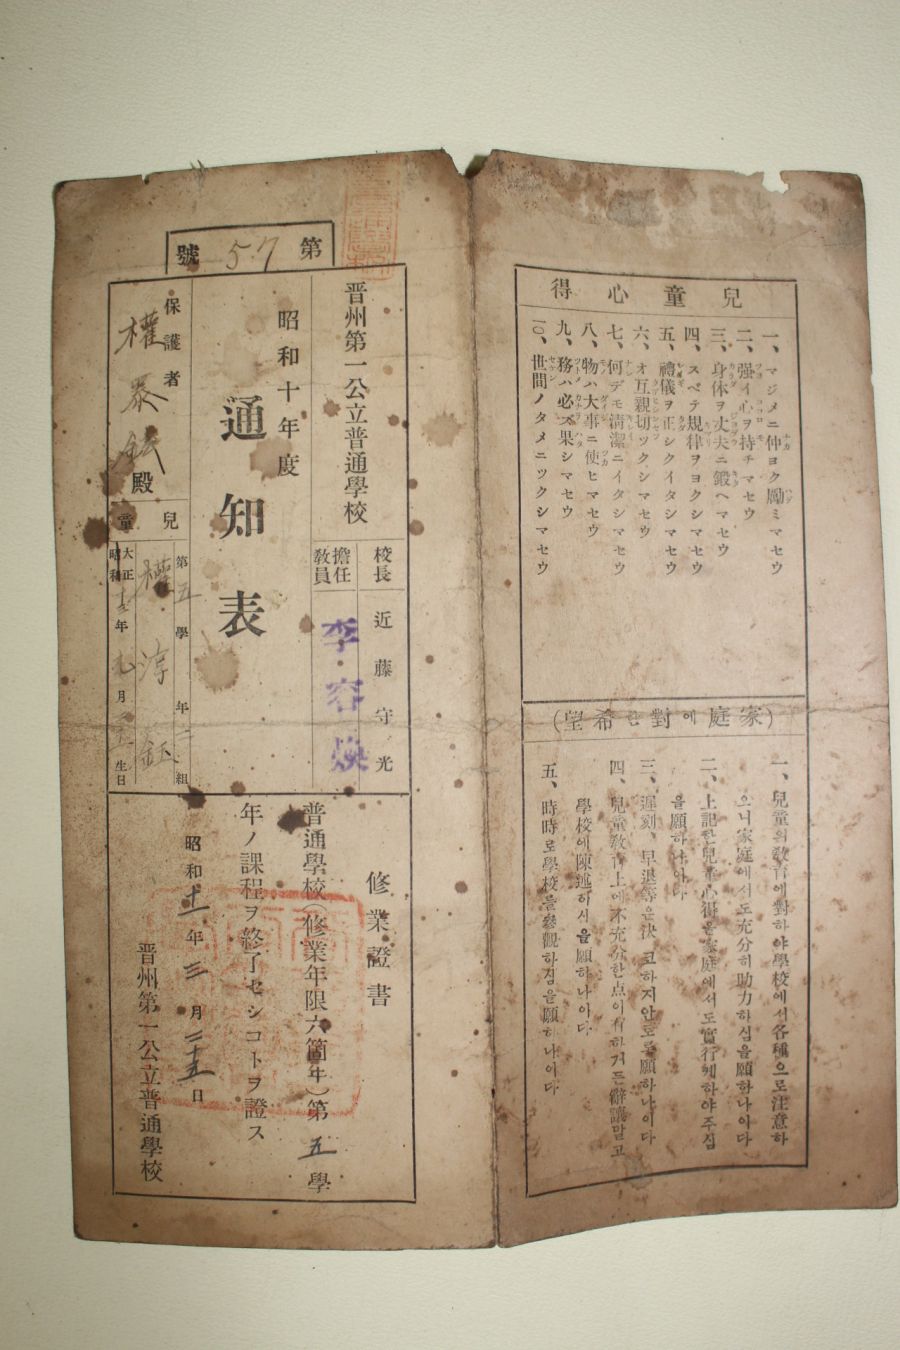 兒童心得
一、マジメニ仲ヨク勵ミマセウ
二、强イ心ヲ持チマセウ
三、身体ヲ丈夫ニ鍛ヘマセウ
四、スベテ規律ヲヨクシマセウ
五、禮儀ヲ正シクイタシマセウ
六、オ互親切ツクシマセウ
七、何デモ淸潔ニイタシマセウ
八、物ハ大事ニ使ヒマセウ
九、務ハ必ズ果シマセウ
一〇、世間ノタメニツクシマセウ
(家庭에對한希望)
一、兒童의敎育에對하야學校에서各種으로注意하
오니家庭에서도充分히助力하심을願하나이다
二、上記한兒童心得을家庭에서도實行케하야주심
을願하나이다
三、遲刻、早退等은決코하지안토록願하나이다
四、兒童敎育上에不充分한点이有하거든辭讓말고
學校에陳述하시을願하나이다
五、時時로學校를參觀하심을願하나이다
第57號
晋州第一公立普通學校
校長 近藤守光
擔任敎員 李容煥
昭和十年度
通知表
保護者 權泰 殿
兒童
第五學年 組
權淳鈺
大正
昭和 年 月 日生
修業證書
普通學校(修業年限六箇年)第五學
年ノ課程ヲ終了セシコトヲ證ス
昭和十一年三月二十五日
晋州第一公立普通學校